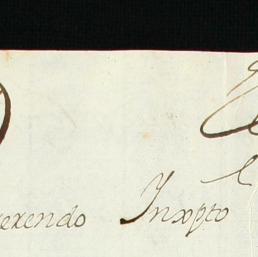 erendo Inxpto